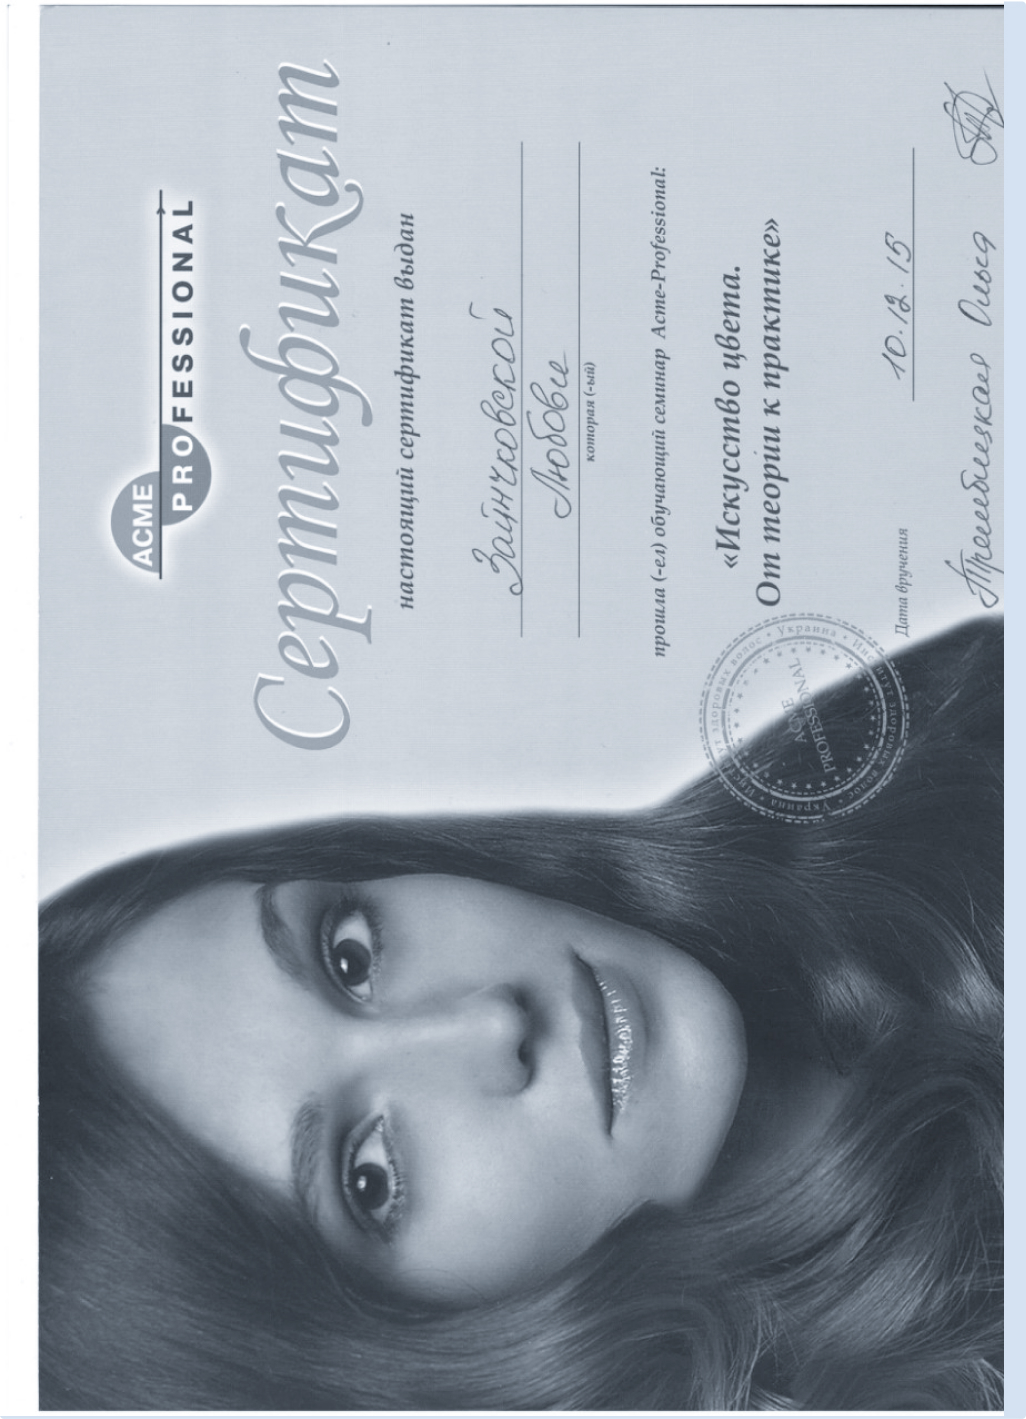 ACME
PROFESSIONAL
Сертификат
настоящий сертификат выдан
Зайнчковской
Любови
которая (-ый)
прошла (-ел) обучающий семинар Acme-Professional:
«Искусство цвета.
От теории к практике»
Дата вручения 10.12.15
Ольга
Институт здоровых волос • Украина • Институт здоровых волос • Украина •
ACME
PROFESSIONAL